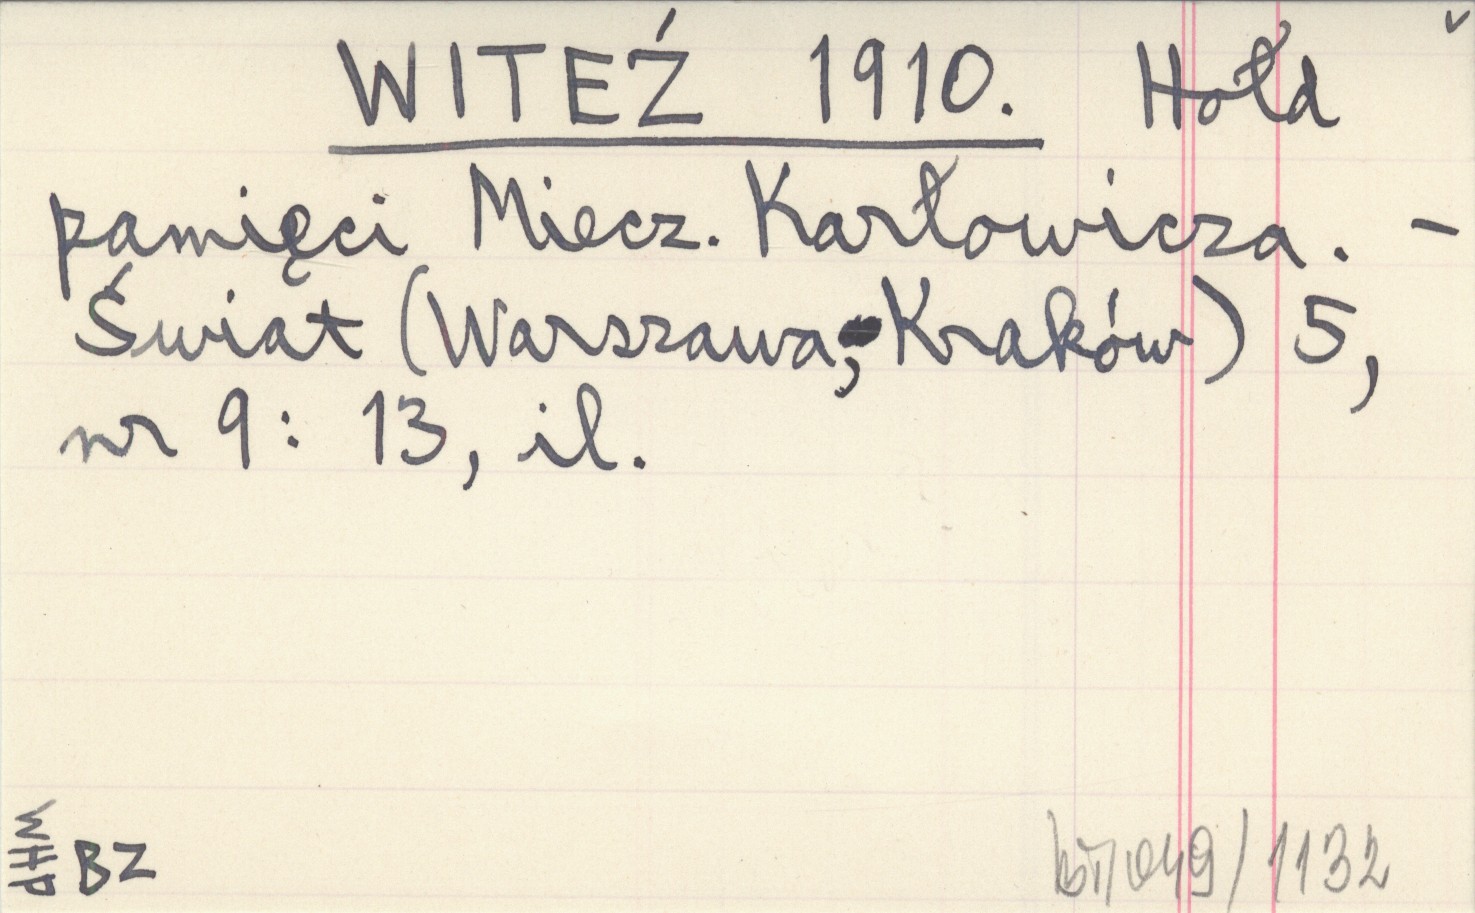 WITEŹ 1910. Hołd
pamięci Miecz. Karłowicza. -
Świat (Warszawa, Kraków) 5,
nr 9: 13, il.
BZ
049/1132